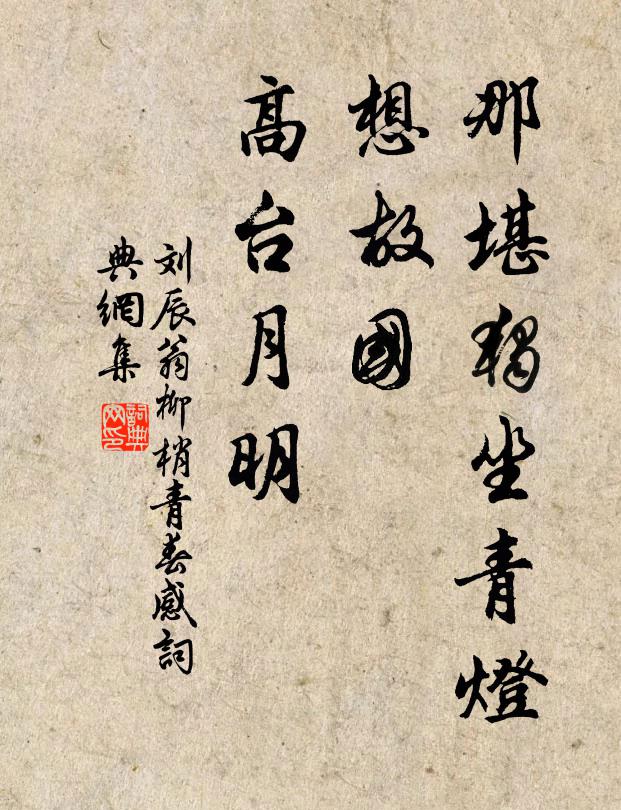 那堪独坐青燈
想故國
高台月明
刘辰翁柳梢青春感詞
典網集
詞典網印